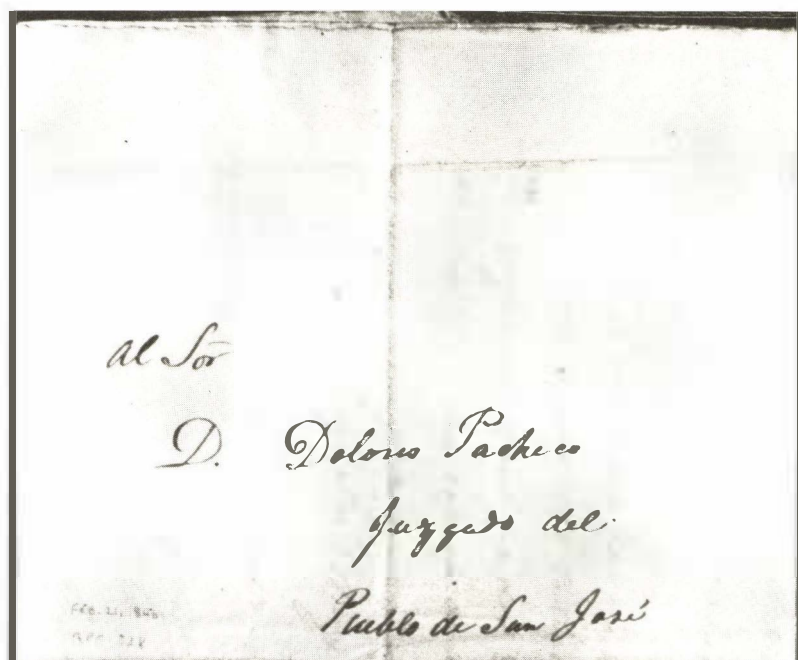 Al Sor
D. Dolores Pacheco
Juzgado del
Pueblo de San José